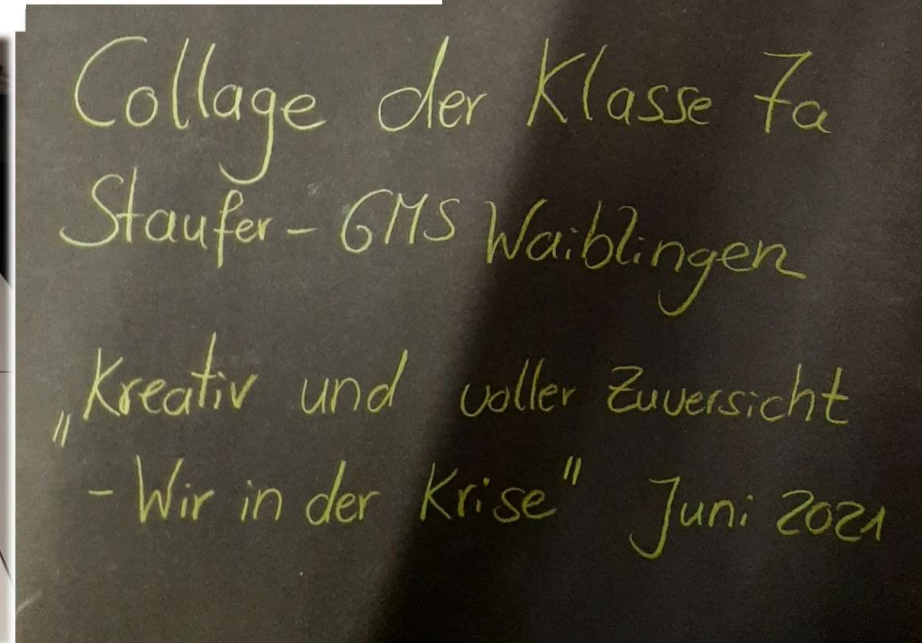 Collage der Klasse 7a
Staufer - GMS Waiblingen
„Kreativ und voller Zuversicht
- Wir in der Krise" Juni 2021